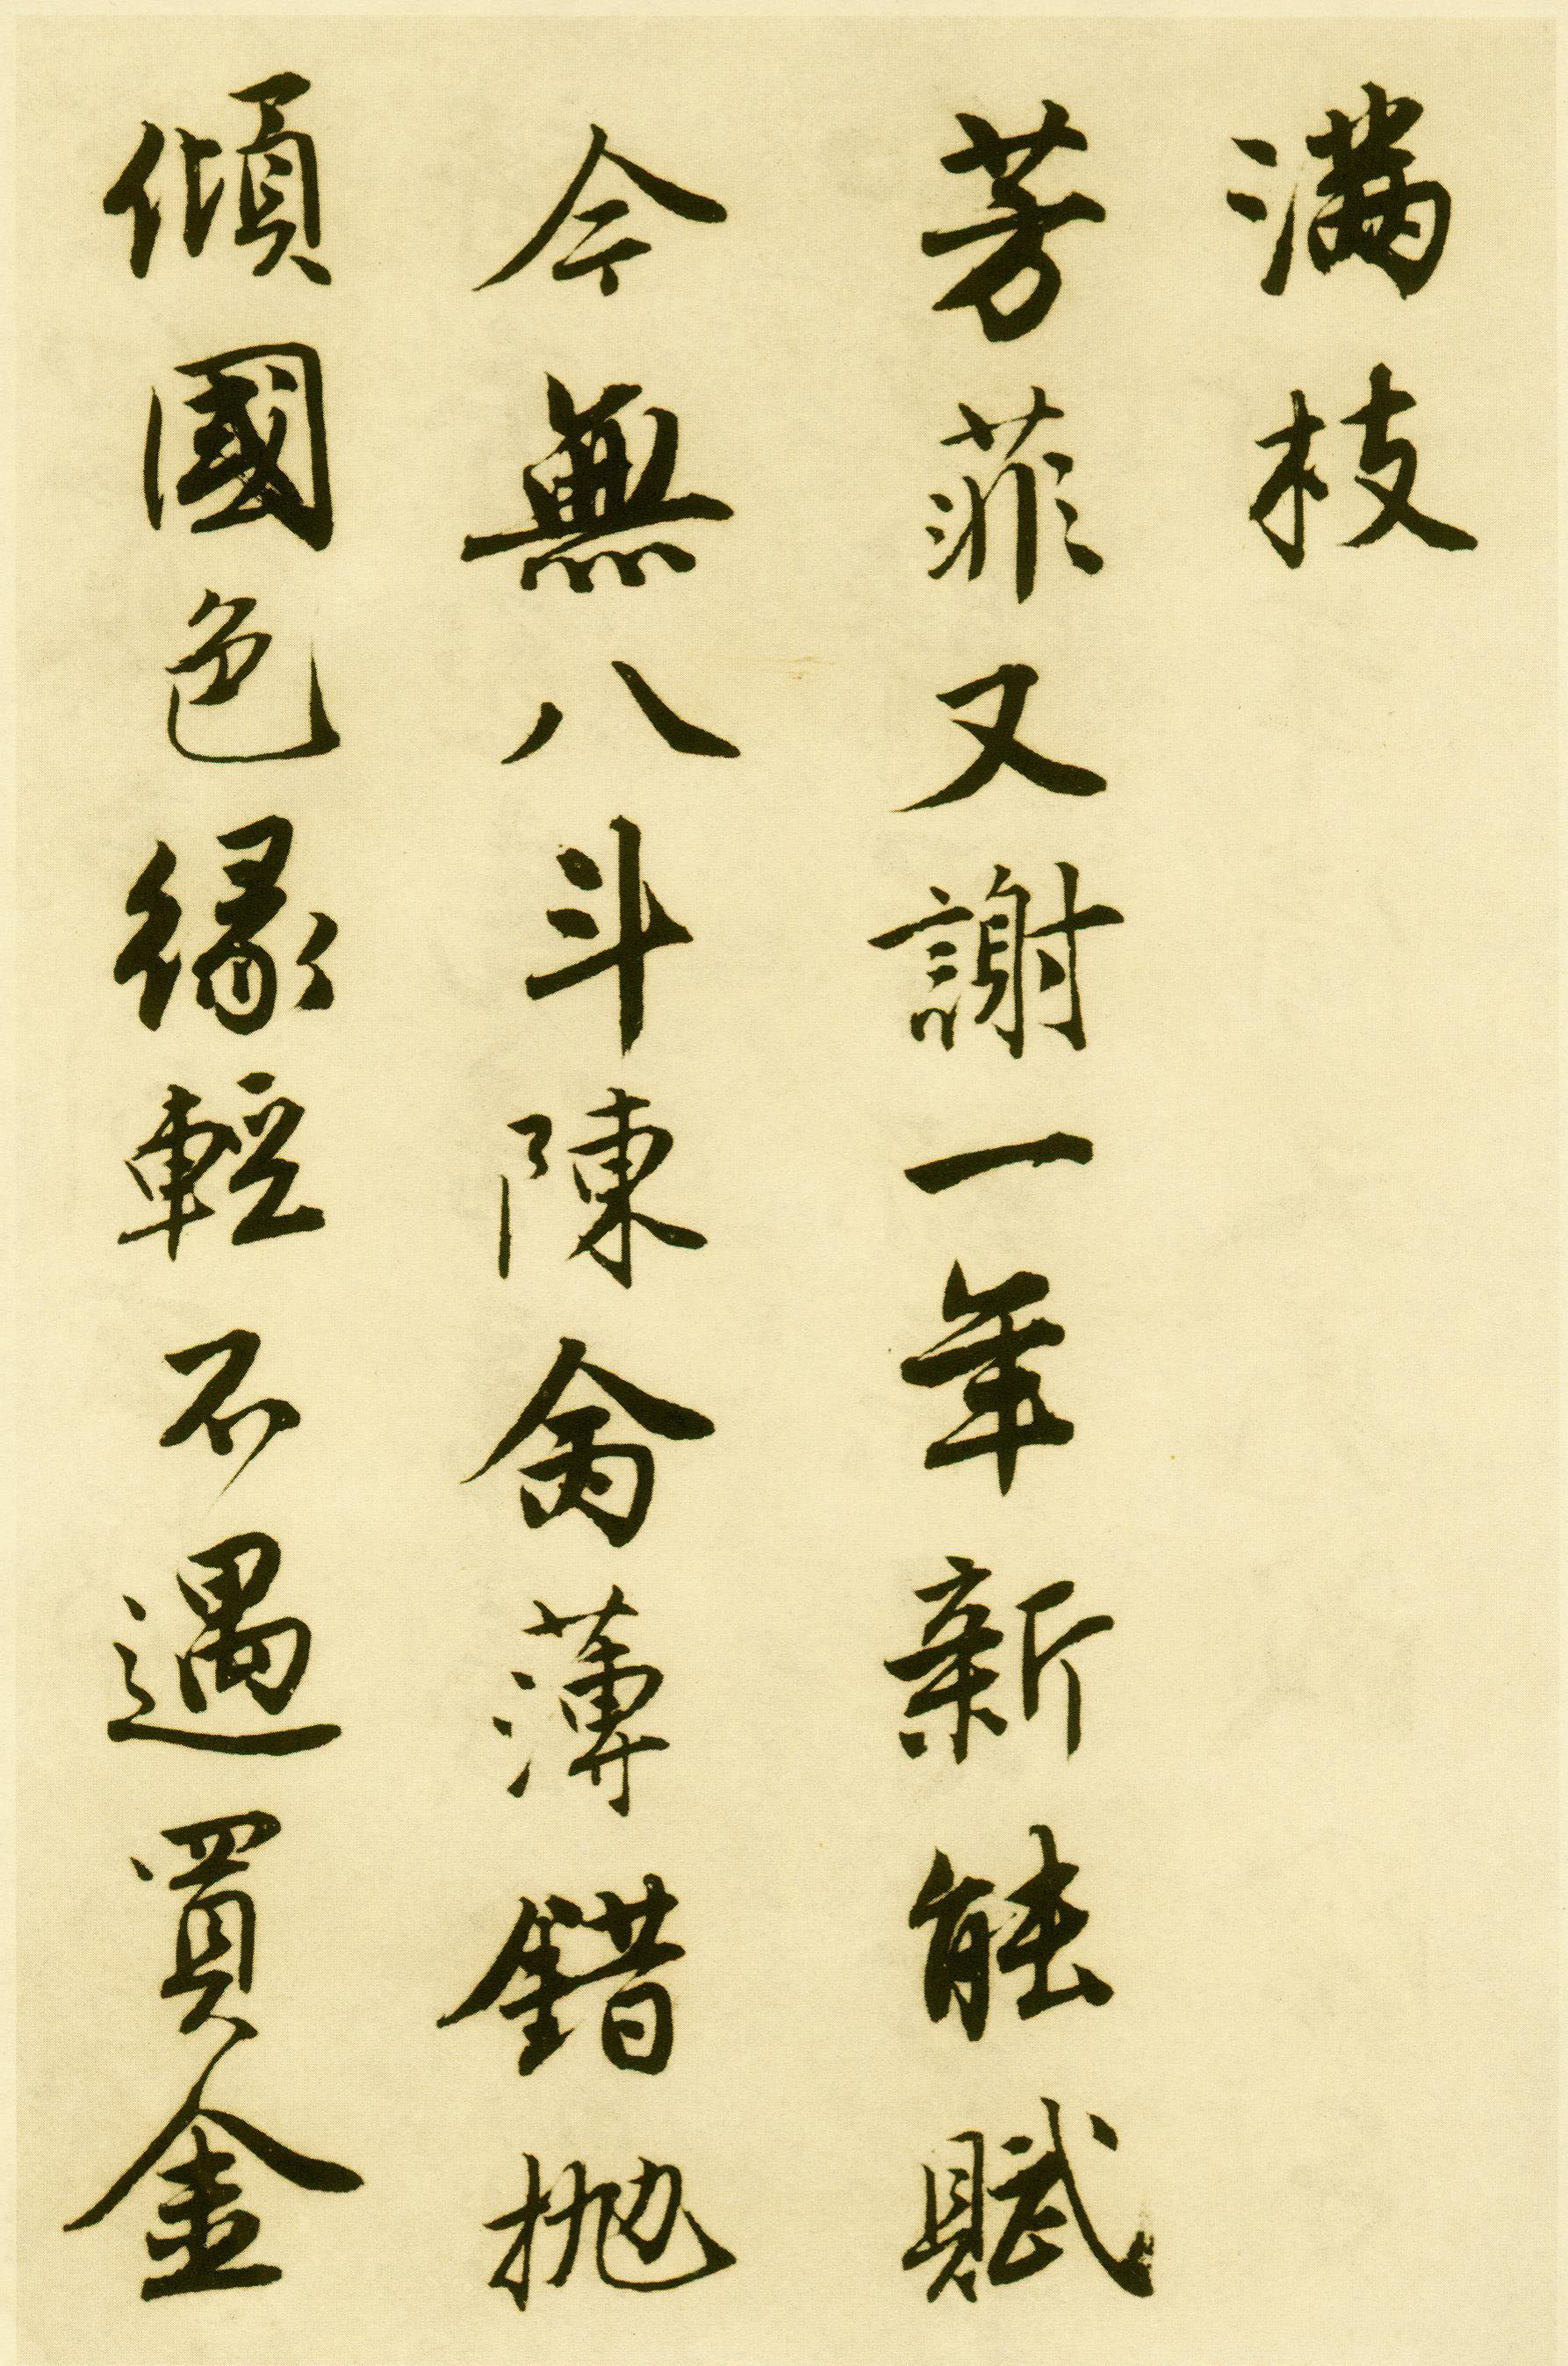 滿枝
芳菲又謝一年新能賦
今無八斗陳禽薄錯抛
傾國色緣輕不遇買金